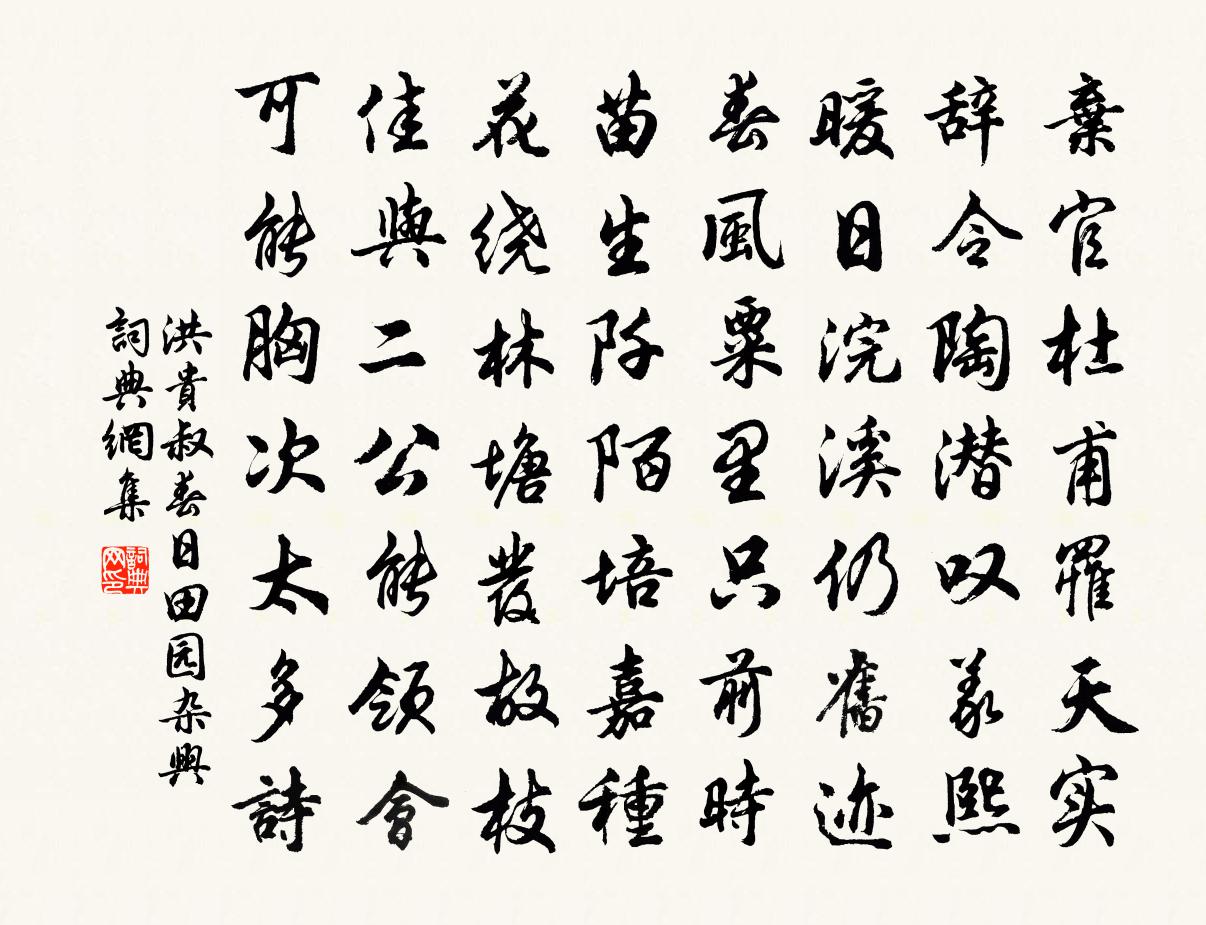 棄官杜甫罹天实
辞令陶潜叹羲熙
暖日浣溪仍舊迹
春風粟里只前時
苗生阡陌培嘉種
花绕林塘發故枝
佳興二公能領會
可能胸次太多詩
洪貴叔春日田园杂興
詞典網集
詞典网印